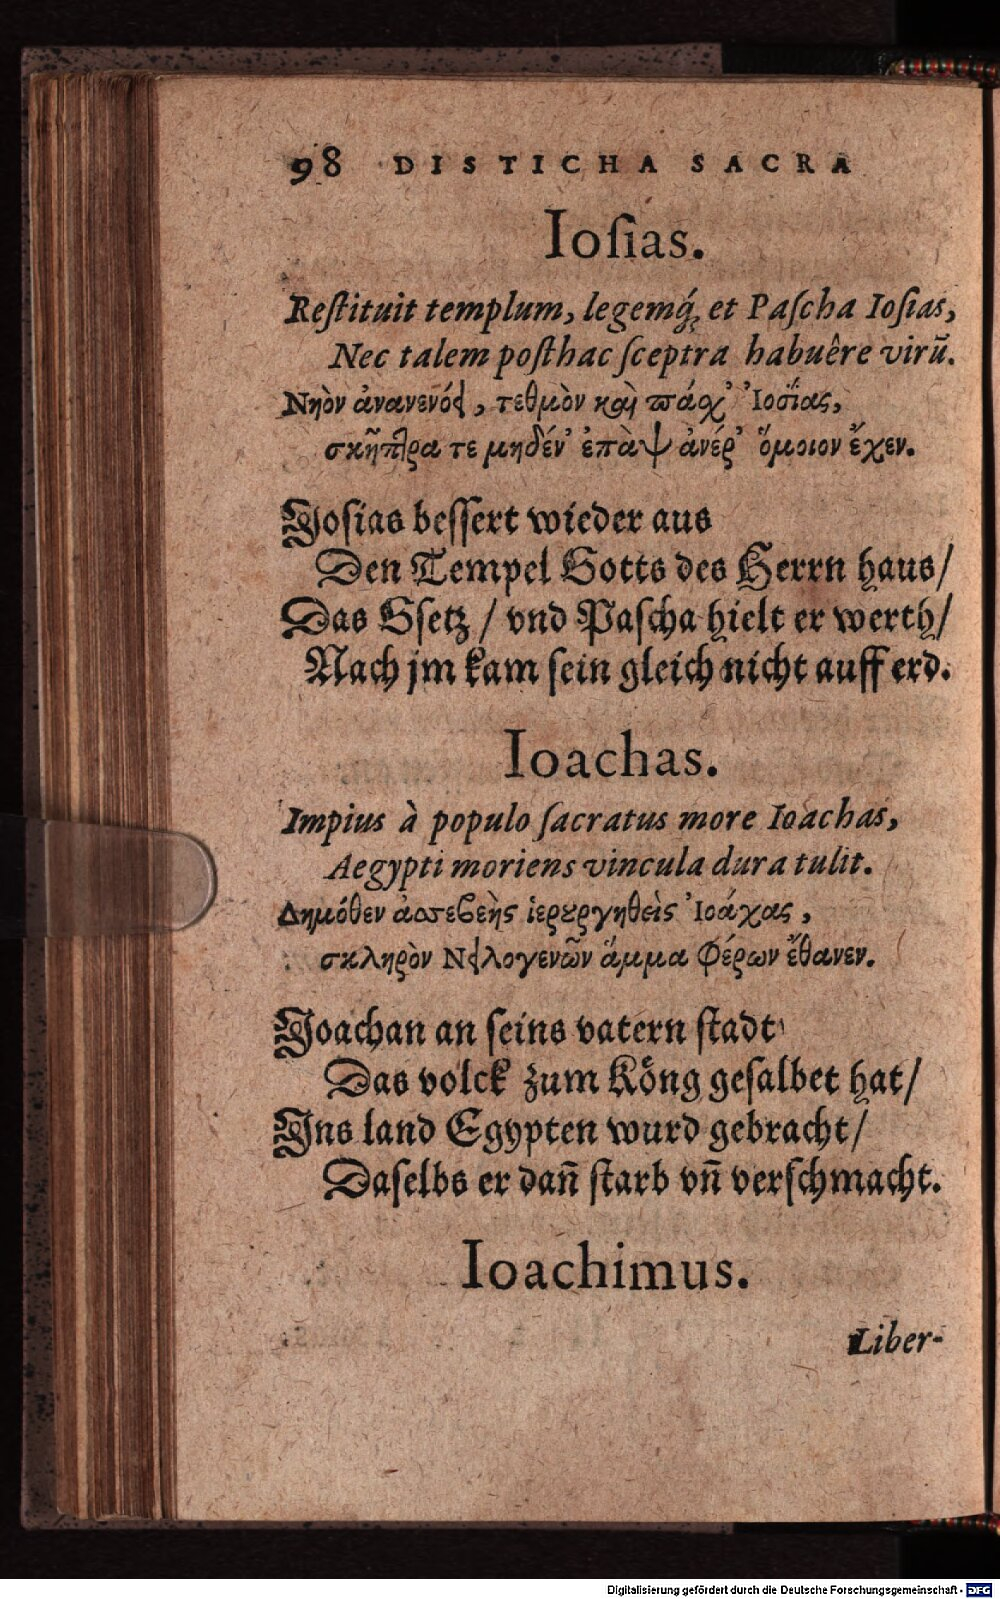 98 DISTICHA SACRA
Ioſias.
Reſtituit templum, legemq́; et Paſcha Ioſias,
Nec talem poſthac ſceptra habuêre virũ.
Νηὸν ἀνανενόει, τεθμὸν καὶ πάσχ' Ἰοσΐας,
σκῆπτρα τε μηδέν' ἐπὰψ ἀνέρ' ὅμοιον ἔχεν.
Josias bessert wieder aus
Den Tempel Gotts des Herrn haus/
Das Gsetz / vnd Paſcha hielt er werth/
Nach jm kam ſein gleich nicht auff erd.
Ioachas.
Impius à populo ſacratus more Ioachas,
Aegypti moriens vincula dura tulit.
Δημόθεν ἀσεβεὴς ἱερουργηθεὶς Ἰοάχας,
σκληρὸν Νειλογενῶν ἅμμα φέρων ἔθανεν.
Joachan an ſeins vatern ſtadt
Das volck zum Köng geſalbet hat/
Jns land Egypten wurd gebracht/
Daſelbs er dañ ſtarb vñ verſchmacht.
Ioachimus.
Liber-
Digitalisierung gefördert durch die Deutsche Forschungsgemeinschaft - DFG